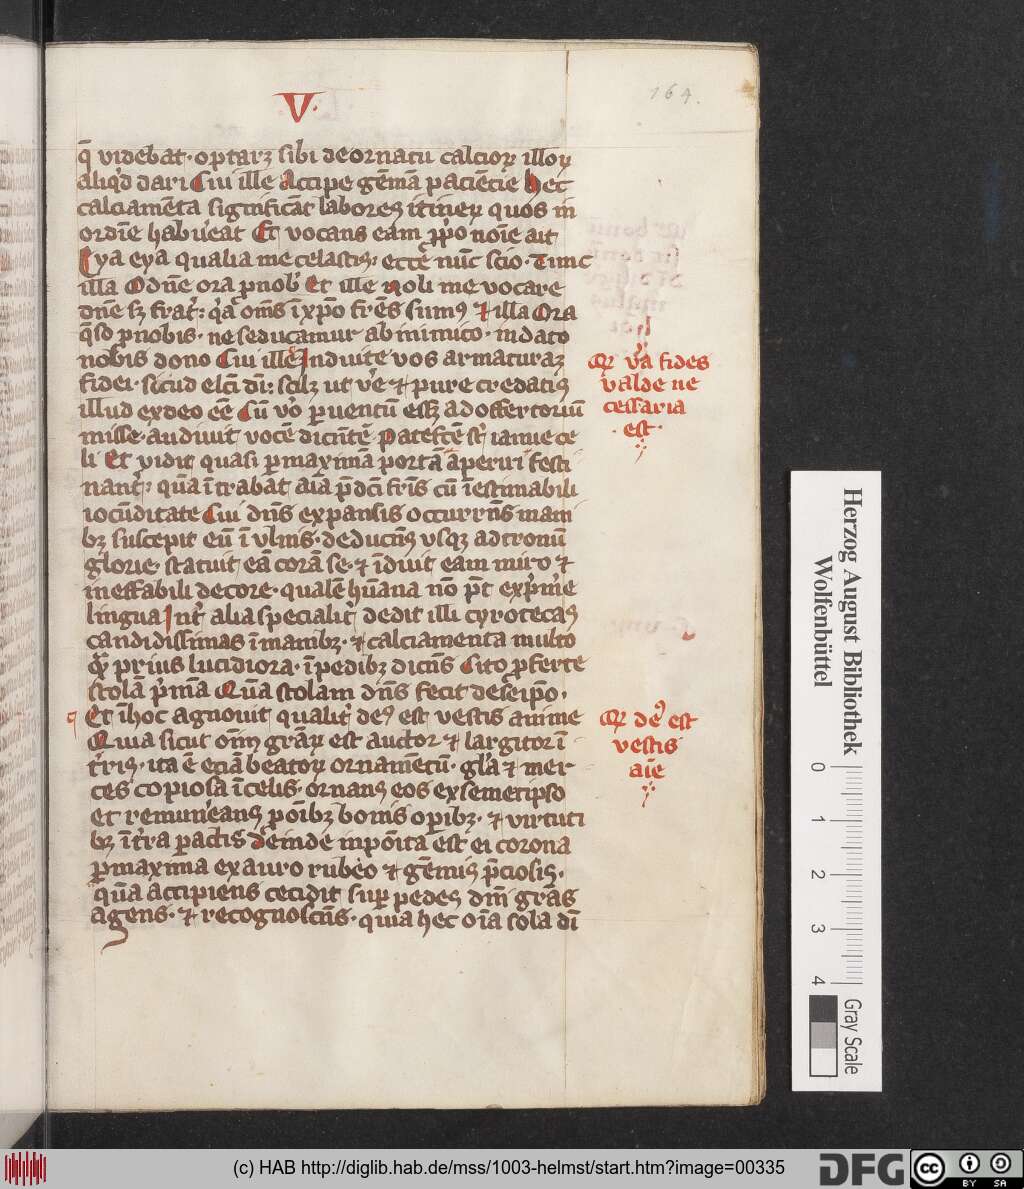 V.
164.
q̄ videbat · optarꝫ sibi de ornatu calcioꝝ illoꝝ
aliqͥd dari Cui ille Accipe gēmā paciēcie hec
calciamēta significāt labores itineꝝ quos in
ordīe habuerāt Et vocans eam ꝓpͦo noīe ait
Eya eya qualia me celastis · ecce nūc scio · Tunc
illa O dn̄e ora ꝓ nobꝰ Et ille noli me vocare
dn̄e sꝫ frat̄r : qͥa om̄s ī xp̄o frēs sumꝰ ⁊ illa Ora
q̄so ꝓ nobis · ne seducamur ab inimico · in dato
nobis dono Cui ille Induite vos armaturaꝫ
fidei · sicud elc̄i dī : scilꝫ ut v̄e ⁊ pure credatis
illud ex deo eē Cū vͦo ꝑuentū essꝫ ad offertoriū
misse · audiuit vocē dicn̄tē · Patefcē st̄ ianue ce
li Et vidit quasi ꝑmaximā portā aperiri festi
nant̄ · quā ītrabāt aīa p̄dc̄i fr̄is cū īestimabili
iocūditate Cui dn̄s expansis occurrn̄s mani
bꝫ suscepit eū ī vlnis · deducn̄s vsqꝫ ad tronū
glorie · statuit eā corā se · ⁊ īduit eam miro ⁊
ineffabili decore · qualē hūana nō p̄t expͥmͤe
lingua Int̄ alia specialit̄ dedit illi cyrotecas
candidissimas ī manibꝫ · ⁊ calciamenta multo
qͣ̄ prius lucidiora · ī pedibꝫ dicn̄s Cito ꝓferte
stolā pͥmā Quā stolam dn̄s fecit de seip̄o ·
Et ī hoc agnouit qualit̄ deꝰ est vestis anime
Quia sicut om̄ī grāꝝ est auctor ⁊ largitor ī
tr̄ris · ita ē eciā beatoꝝ ornamētū · glā ⁊ mer
ces copiosa ī celis · ornans eos ex semetipso
et remunerans ꝓ oībꝫ bonis oꝑibꝫ · ⁊ virtuti
bꝫ ī tr̄ra ꝑactis Deinde inpoīta est ei corona
ꝑmaxima ex auro rubeo ⁊ gēmis p̄ciosis ·
quā accipiens cecidit suꝑ pedes dn̄i grās
agens · ⁊ recognoscn̄s · quia hec oīa sola dī
Qͬ vͣa fides
valde ne
cessaria
est
Qͬ deꝰ est
vestis
aīe
Herzog August Bibliothek
Wolfenbüttel
0 1 2 3 4
Gray Scale
(c) HAB http://diglib.hab.de/mss/1003-helmst/start.htm?image=00335
DFG
cc BY SA